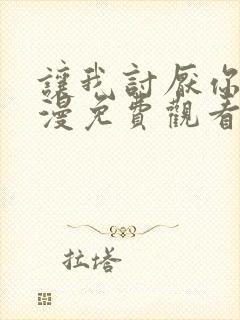 讓我討厭你
漫免費觀看
拉塔